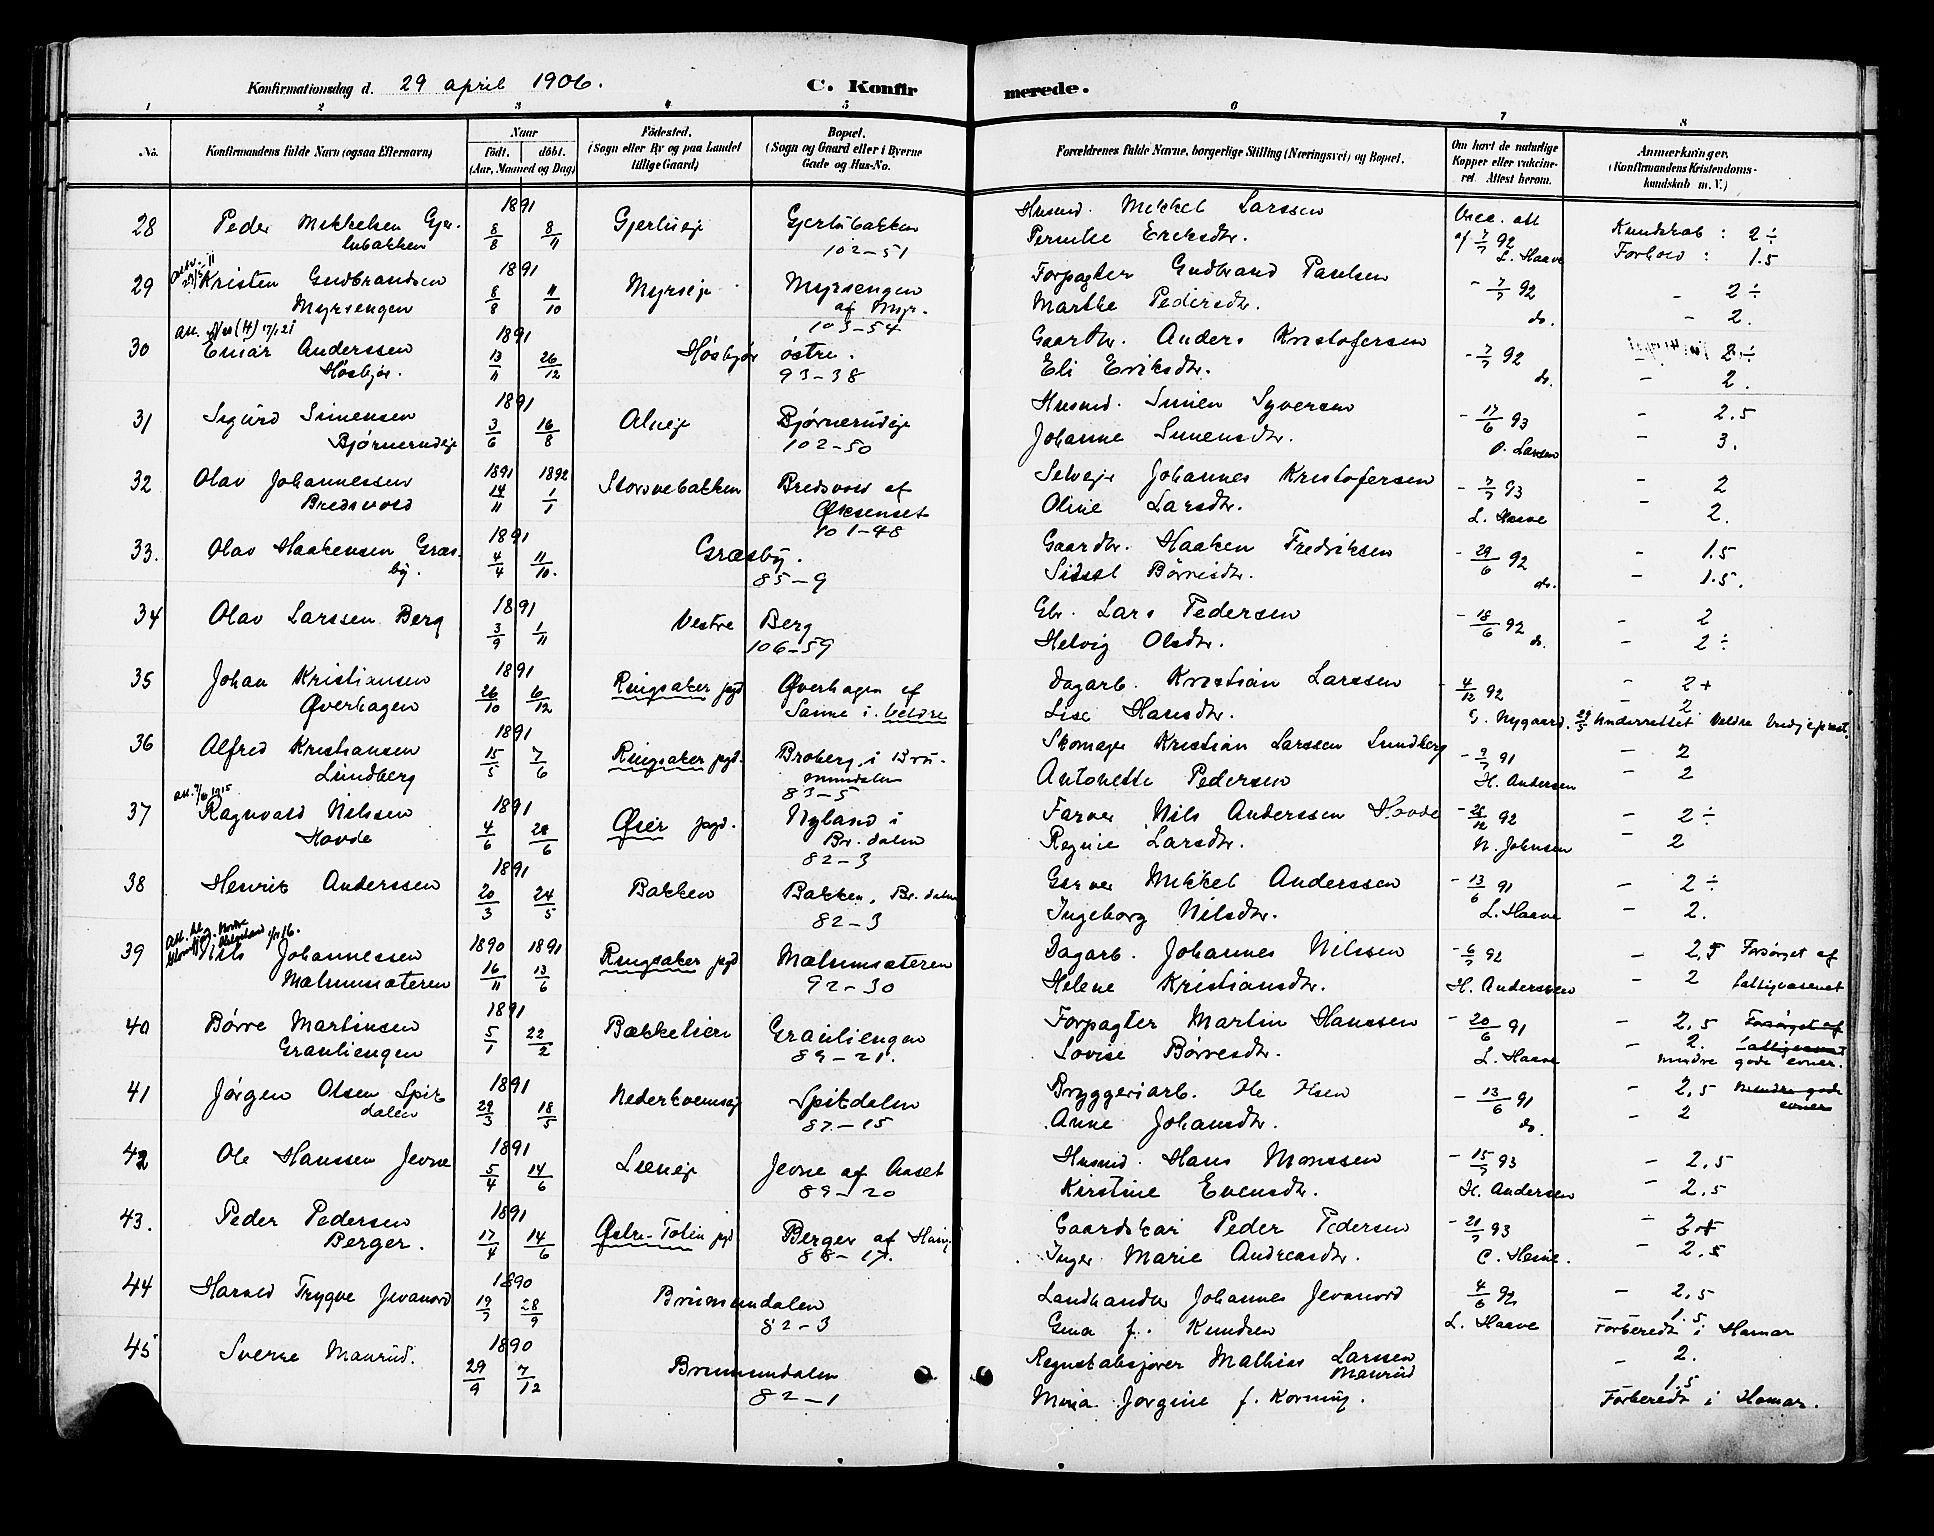 Konfirmationsdag d. 29 april 1906. C. Konfirmerede.
1 2 3 4 5 6 7 8
No. Konfirmandens fulde Navn (ogsaa Efternavn) Naar født. døbt. (Aar, Maaned og Dag) Fødested. (Sogn eller By og paa Landet tillige Gaard) Bopæl. (Sogn og Gaard eller i Byerne Gade og Hus-No. Forældrenes fulde Navne, borgerlige Stilling (Næringsvei) og Bopæl. Om havt de naturlige Kopper eller vakcineret. Attest herom. Anmærkninger. (Konfirmandens Kristendomskundskab m. V.)
28 Peder Mikkelsen Gjerlubakken 1891 8/8 8/11 Gjerlueje Gjerlubakken 102-51 Husmd. Mikkel Larssen
Pernille Eriksdtr. Vacc. att af 7/7 92 L. Haave Kundskab : 2 ÷
Forhold : 1.5
29 Kristen Gudbrandsen Myrsengen 1891 8/8 11/10 Myrseje Myrsengen af Myr. 103-54 Forpagter Gudbrand Paulsen
Marthe Pedersdtr. - 7/7 92 do. - 2 ÷
- 2.
30 Einar Anderssen Høsbjør. 1891 13/11 26/12 Høsbjør østre. 93-38 Gaardbr. Anders Kristofersen
Eli Eriksdtr. - 7/7 92 do. 2 ÷
- 2.
31 Sigurd Simensen Bjørnerudeje 1891 3/6 16/8 Alueje Bjørnerudeje 102-50 Husmd. Simen Syversen
Johanne Simensdtr. - 17/6 93 O. Larsen - 2.5
- 3.
32 Olav Johannessen Bredsvold 1891 14/11 1892 1/1 Storsvebakken Bredsvold af Øksenset 101-48 Selvejr Johannes Kristofersen
Oline Larsdtr. - 7/7 93 L. Haave - 2
- 2.
33. Olav Haakensen Græsby. 1891 4/4 11/10. Græsby. 85-9 Gaardbr. Haaken Fredriksen
Sidsel Børresdtr. - 29/6 92 do. - 1.5
- 1.5.
34 Olav Larssen Berg 1891 3/9 1/11 Vestre Berg 106-59 Gbr. Lars Pedersen
Helvig Olsdtr. - 18/6 92 do. - 2
- 2 ÷
35 Johan Kristiansen Øverhagen 1891 26/10 6/12 Ringsaker pgd Øverhagen af Sanne i Veldre Dagarb. Kristian Larssen
Lise Hansdtr. - 4/12 92 G. Nygaard. - 2 +
- 2. 29/5 Underrettet Veldre tredjeprest.
36 Alfred Kristiansen Lundberg 1891 15/5 7/6 Ringsaker pgd. Broberg i Brumunddalen 83-5 Skomager Kristian Larssen Lundberg
Antonette Pedersen - 9/7 91 H. Andersen - 2
- 2
37 att. 7/6 1915 Ragnvald Nilssen Hovde 1891 4/6 28/6 Øier pgd. Nyland i Br. dalen 82-3 Farver Nils Anderssen Hovde
Regine Larsdtr. - 28/12 92 N. Johnsen - 2 ÷
- 2
38 Henrik Anderssen 1891 20/3 24/5 Bakken Bakken, Br. dalen 82-3 Garver Mikkel Anderssen
Ingeborg Nilsdtr. - 13/6 91 L. Haave - 2 ÷
- 2.
39 Nils Johannessen Malumsæteren 1890 16/11 1891 13/6 Ringsaker pgd Malumsæteren 92-30 Dagarb. Johannes Nilssen
Helene Kristiansdtr. - 6/7 92 H. Anderssen - 2.5 Forsørget af
- 2 fattigvæsenet
40 Børre Martinsen Granliengen 1891 5/1 22/2 Bækkelien Granliengen 89-21. Forpagter Martin Hanssen
Lovise Børresdtr. - 20/6 91 L. Haave - 2,5 Forsørget af
- 2. fattigvæsenet
mindre gode evner.
41 Jørgen Olsen Spitdalen 1891 29/3 18/5 Nederkvernseje Spitdalen 87-15 Bryggeriarb. Ole Olsen
Anne Johansdtr. - 13/6 91 do. - 2,5 mindre gode evner
- 2
42 Ole Hanssen Jevne 1891 5/4 14/6 Lieneje Jevne af Aaset 89-20 Husmd. Hans Monssen
Kirstine Evensdtr. - 15/7 93 H. Andersen - 2.5
- 2.5
43. Peder Pedersen Berger. 1891 17/4 14/6 Østre-Toten pgd Berger af Haug 88-17. Gaardskar Peder Pedersen
Inger Marie Andreasdtr. - 21/7 93 C. Heine. - 2+
- 2.5
44 Harald Trygve Jevanord 1890 19/7 28/9 Brumunddalen 82-3 Landhandler Johannes Jevanord
Gina f. Knudsen 4/6 92 L. Haave - 2.5
1.5
Forberedt i Hamar
45 Sverre Maurud. 1890 29/9 7/12 Brumunddalen 82-1 Regnskabsfører Mathias Larssen Maurud
Mina Jorgine f. Korning. - 2.
1.5
Forberedt i Hamar.